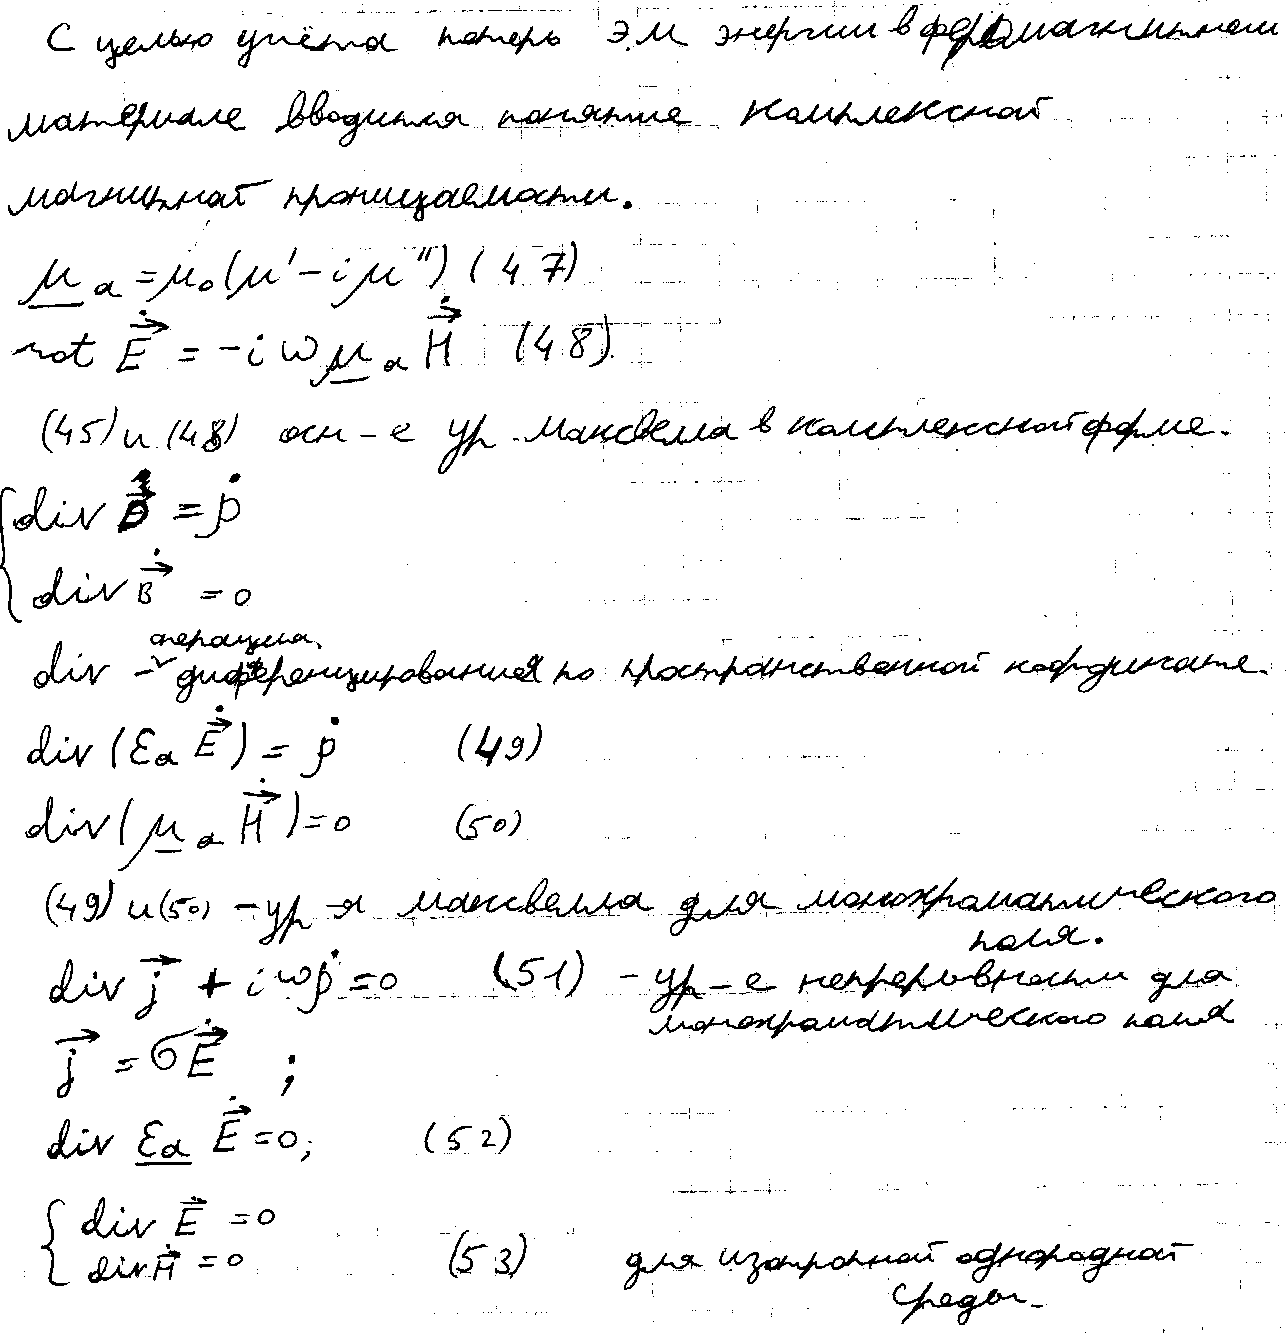 С целью учёта потерь ЭМ энергии в ферромагнитном
материале вводится понятие комплексной
магнитной проницаемости.
μ̲ₐ = μ₀(μ' − iμ'') (47)
rot E⃗̇ = −iωμ̲ₐH⃗̇ (48)
(45) и (48) осн-е ур. Максвелла в комплексной форме.
div D⃗̇ = ρ̇
div B⃗̇ = 0
операция
div – дифференцирования по пространственной координате.
div(εₐE⃗̇) = ρ̇ (49)
div(μ̲ₐH⃗̇) = 0 (50)
(49) и (50) – ур-я максвелла для монохроматического
поля.
div j⃗ + iωρ̇ = 0 (51) – ур-е непрерывности для
монохроматического поля
j⃗ = σE⃗̇ ;
div ε̲ₐE⃗̇ = 0; (52)
div E⃗̇ = 0
div H⃗̇ = 0 (53) для изотропной однородной
среды.